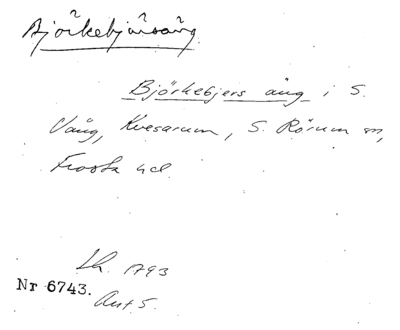 Björkebjärsäng
Björkebjers äng i S.
Vång, Kvesarum, S. Rörum sn,
Frosta hd.
Lh. 1793
Nr 6743.
Akt 5.